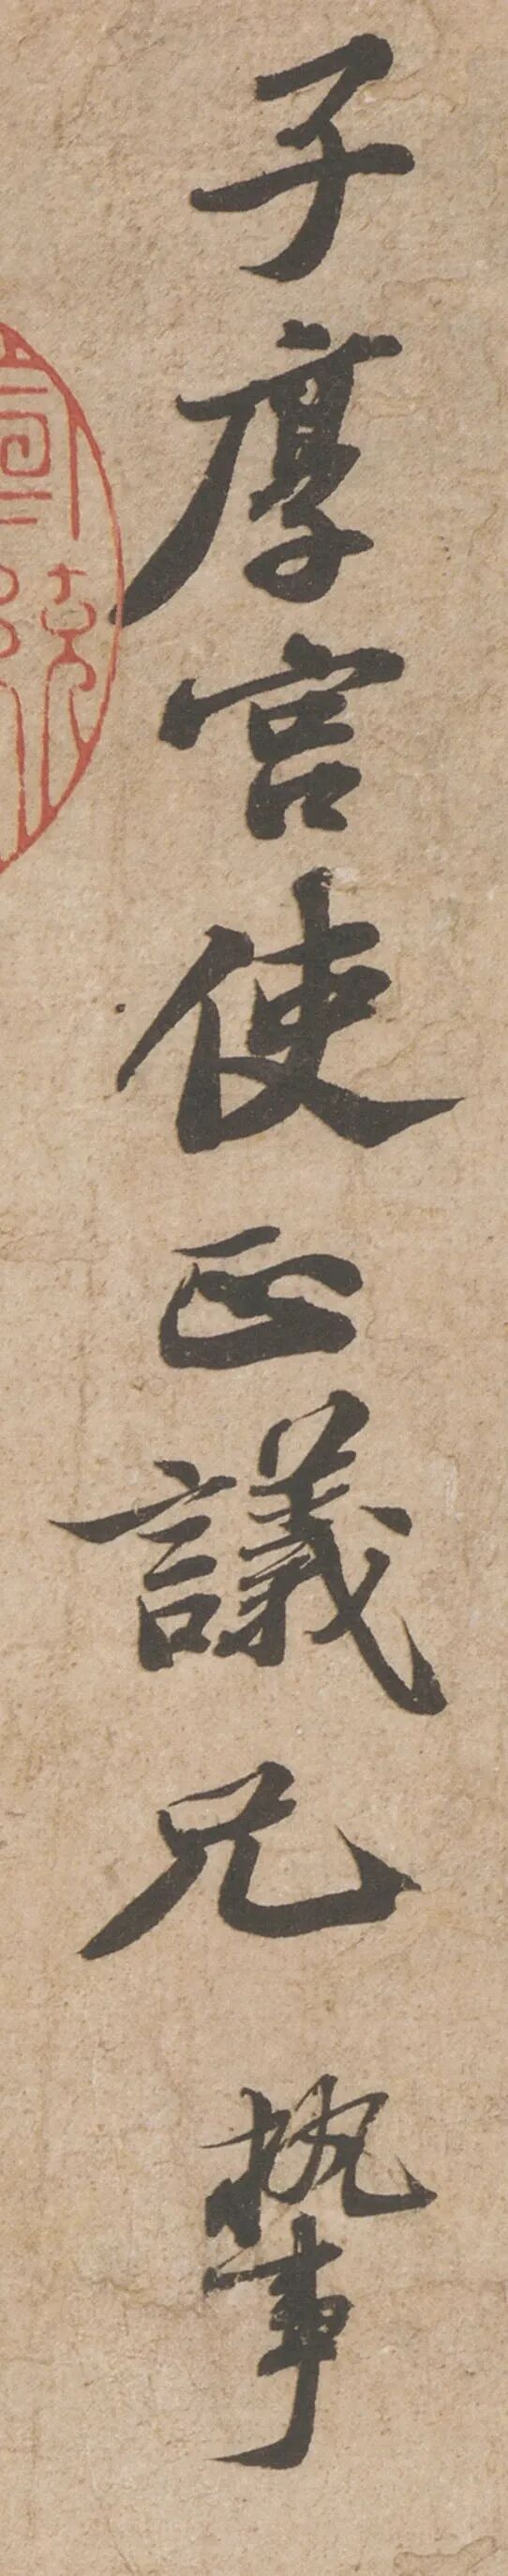 子厚宫使正議兄执事